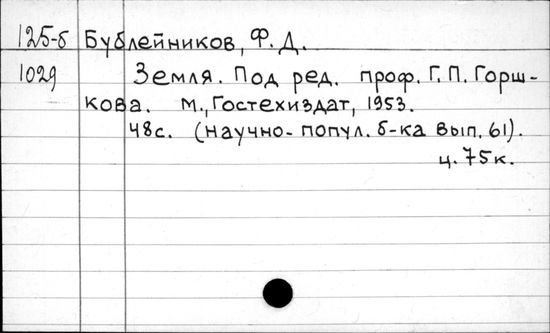 125-б Бублейников, Ф. Д.
1029 Земля. Под ред. проф. Г. П. Горш-
кова. М., Гостехиздат, 1953.
48с. (научно-попул. б-ка вып. 61).
ц. 75к.